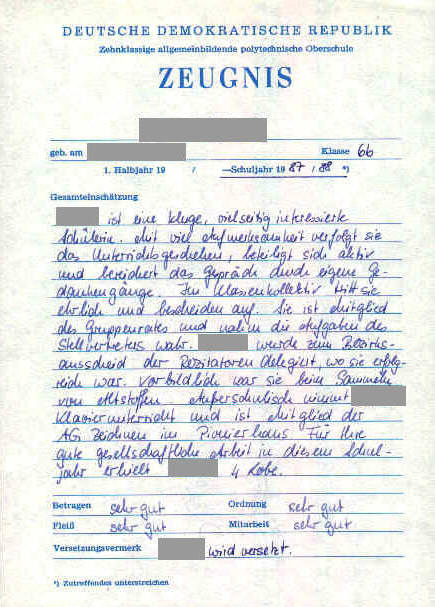 DEUTSCHE DEMOKRATISCHE REPUBLIK
Zehnklassige allgemeinbildende polytechnische Oberschule
ZEUGNIS
geb. am Klasse 6b
1. Halbjahr 19 / —Schuljahr 1987/88 *)
Gesamteinschätzung
ist eine kluge, vielseitig interessierte
Schülerin. Mit viel Aufmerksamkeit verfolgt sie
das Unterrichtsgeschehen, beteiligt sich aktiv
und bereichert das Gespräch durch eigene Ge-
dankengänge. Im Klassenkollektiv tritt sie
ehrlich und bescheiden auf. Sie ist Mitglied
des Gruppenrates und nahm die Aufgaben des
Stellvertreters wahr. wurde zum Bezirks-
ausscheid der Rezitatoren delegiert, wo sie erfolg-
reich war. Vorbildlich war sie beim Sammeln
von Altstoffen. Außerschulisch nimmt
Klavierunterricht und ist Mitglied der
AG Zeichnen im Pionierhaus Für Ihre
gute gesellschaftliche Arbeit in diesem Schul-
jahr erhielt 4 Lobe.
Betragen sehr gut Ordnung sehr gut
Fleiß sehr gut Mitarbeit sehr gut
Versetzungsvermerk wird versetzt.
*) Zutreffendes unterstreichen